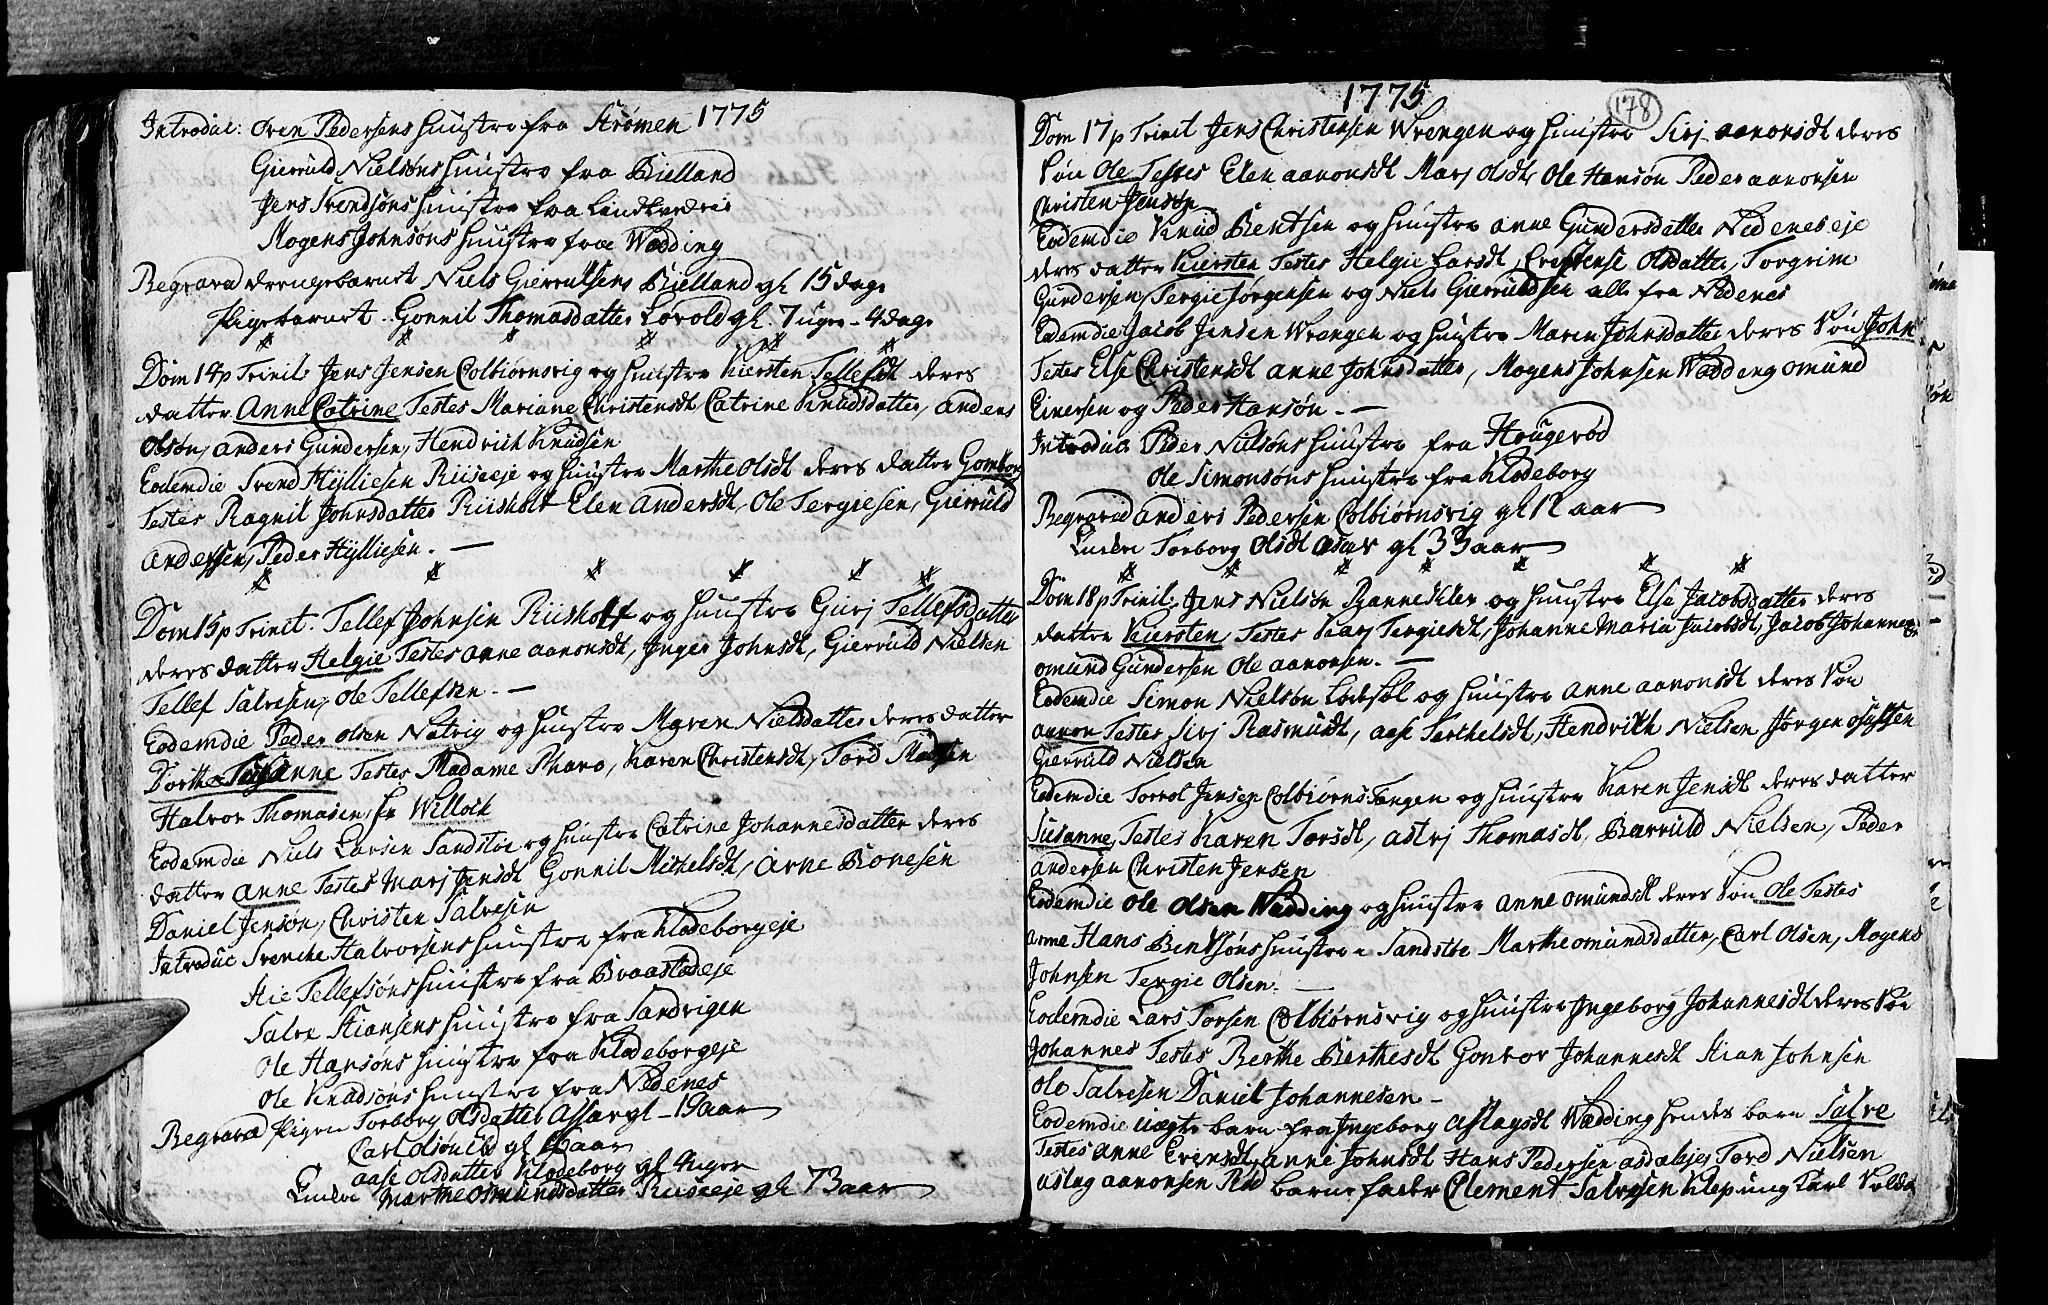 Introduc: Oven Pedersens Huustro fra Strømen 1775
Gierruld Nielsøns Huustro fra Bielland
Jens Svendsøns Huustro fra
Mogens Johnsøns Huustro fra Wædding
Begraved drengebarnet Niels Gierrulsens Bielland gl 15 dage
Pigebarnet Gonnil Thomasdatter Løvold gl. 7 uger - 4 dage
Dom 14 p Trinit: Jens Jensen Colbiørnsvig og Huustro Kiersten Tellefsdt deres
datter Anne Catrine Testes Mariane Christensdt Catrine Knudsdatter, Anders
Olsøn, Anders Gundersen, Hendrich Knudsen
Eodemdie Svend Hylliesen Riiseeje og Huustro Marthe Olsdt deres datter Gomborg
Testes Ragnil Johnsdatter Riisholt Elen Andersdt, Ole Tergiesen, Gierruld
Anderssen, Peder Hylliesen. —
Dom 15 p Trinit. Tellef Johnsen Riisholt og Huustro Gurj Tellefsdatter
deres datter Helgie Testes Anne Aanonsdt, Inger Johnsdt, Gierruld Nielsen
Tellef Salvesen, Ole Tellefsen. —
Eodemdie Peder Olsen Natvig og Huustro Maren Nielsdatter deres datter
Dorthe Susanne Testes Madame Pharo, Karen Christensdt, Tord Madsen
Halvor Thomasen, Hr Willock
Eodemdie Niels Larsen Sandstøe og Huustro Catrine Johannesdatter deres
datter Anne Testes Marj Jensdt Gonnil Michelsdt, Arne Bonesen
Daniel Jensøn, Christen Salvesen
Introduc Svenche Halvorsens Huustro fra Klodeborgeje
Stie Tellefsøns Huustro fra Braastadeje
Salve Stiansens Huustro fra Sandvigen
Ole Hansøns Huustro fra Klodeborgeje
Ole Knudsøns Huustro fra Nedenes
Begraved Pigen Torborg Olsdatter Assar gl - 19 aar
Carl Olsøn gl aar
Aase Olsdatter Klodeborg gl 4 uger
Enken Marthe Osmundsdatter Riiseeje gl 73 aar
1775
178
Dom 17 p Trinit Jens Christensen Wrengen og Huustro Sirj Aanonsdt deres
Søn Ole Testes Elen Aanonsdt Marj Olsdtr Ole Hansøn Peder Aanonsen
Christen Jensøn
Eodemdie Knud Bentsen og Huustro Anne Gundersdatter Nedeneseje
deres datter Kiersten Testes Helgie Larsdt, Cristense Olsdatter, Torgrim
Gundersen, Tergie Jørgensen og Niels Gierruldsen alle fra Nedenes
Eodemdie Jacob Jensen Wrengen og Huustro Maren Johnsdatter deres Søn John
Testes Else Christensdt Anne Johnsdatter, Mogens Johnsen Wædding Omund
Einersen og Peder Hansøn. —
Introduc Peder Nielsøns Huustro fra Hougerød
Ole Simonsøns Huustro fra Klodeborg
Begraved Anders Pedersen Colbiørnsvig gl 12 aar
Enken Torborg Olsdt gl 33 aar
Dom 18 p Trinit, Jens Nielsøn og Huustro Else Jacobsdatter deres
datter Kiersten Testes Karj Tergiesdt, Johanne Maria Jacobsdt, Jacob Johannes
Omund Gundersen Ole Aanonsen. —
Eodemdie Simon Nielsøn og Huustro Anne Aanonsdt deres Søn
Aanon Testes Sirj Rasmusdt, Aase Terchelsdt, Hendrikh Nielsen Jørgen
Gierruld Nielsen
Eodemdie Torrol Jensen Colbiørns Tangen og Huustro Karen Jensdt deres datter
Susanne, Testes Karen Torsdt, Astrj Thomasdt, Bærruld Nielsen, Peder
Andersen Christen Jensen
Eodemdie Ole Olsen Wædding og Huustro Anne Omundsdt deres Søn Ole Testes
Hans Bentsøns Huustro Sandstøe Marthe Omundsdatter, Carl Olsen, Mogens
Johnsen Tergie Olsen. —
Eodemdie Lars Torsen Colbiørnsvig og Huustro Ingeborg Johannesdt deres Søn
Johannes Testes Berthe Berthesdt Gonvor Johannesdt Stian Johnsen
Ole Salvesen Daniel Johannesen —
Eodemdie uægte barn fra Ingeborg Aslagsdt Wædding hendes barn Salve
Testes Anne Evensdt, Anne Johnsdt Hans Pedersen Tord Nielsen
Aslag Aanonsen Rød barne fader Clement Salvesen ung Karl